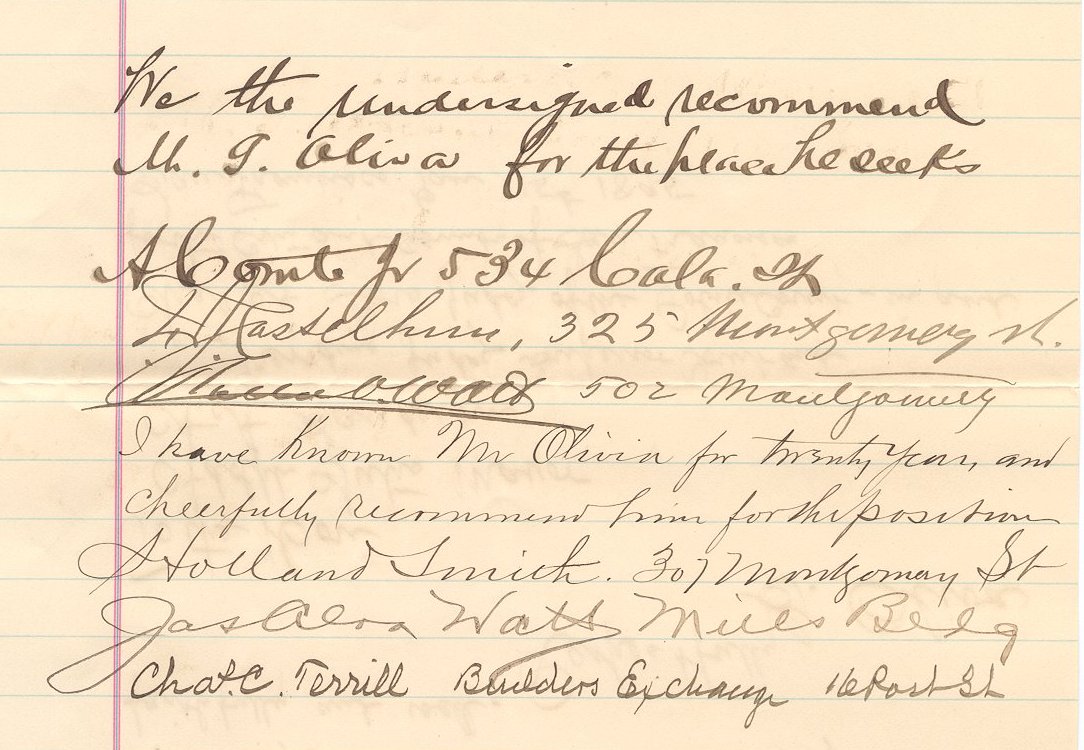 We the undersigned recommend
Mr. T. Oliva for the place he seeks
A Comte Jr 534 Cala. St
Casselhun, 325 Montgomery st.
Watt 502 Montgomery
I have Known Mr Olivia for twenty years and
cheerfully recommend him for the position
Holland Smith. 307 Montgomery St
Jas Alva Watt Mills Bldg
Chas. C. Terrill Builders Exchange 16 Post St